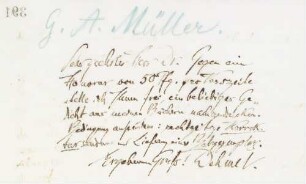 G. A. Müller.
Sehr geehrter Herr! Gegen ein
Honorar von 50 Pfg. pro Textzeile
stelle ich Ihnen frei, ein beliebiges Ge-
dicht aus meinen Büchern nachzudrucken.
Bedingung außerdem: rechtzeitige Korrek-
tursendung u. Lieferung eines Belegexemplar.
Ergebenen Gruß! Dehmel.